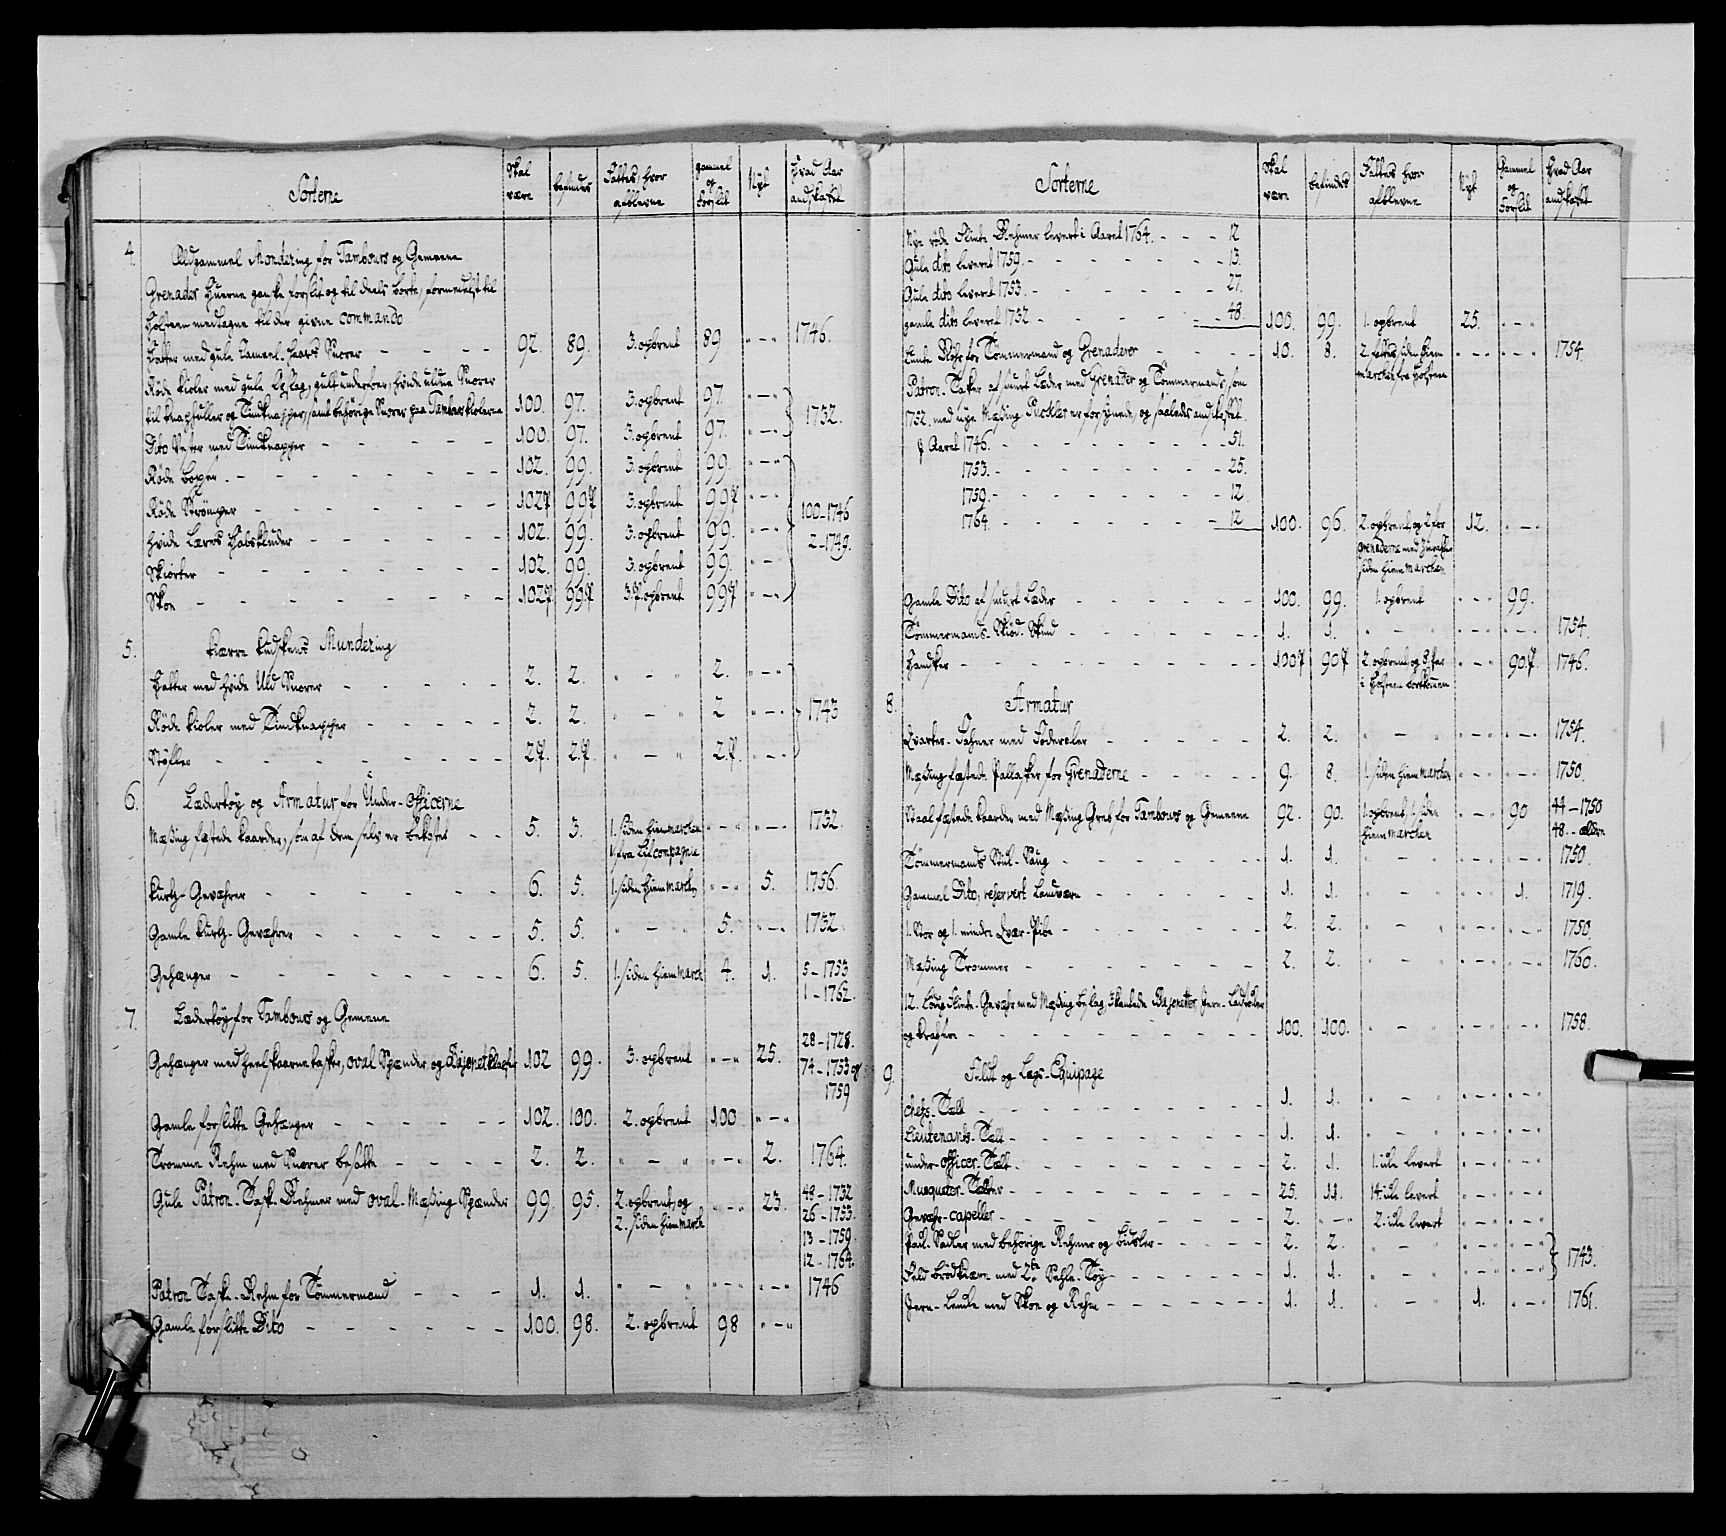 Sorterne | Skal være | befindes | Fattes, hvor afblevne | gammel og forslit | Nyt | Hvad Aar andskaffet
4. Ældgammel Mondering for Tambours og Gemeene
Grenader Huerne ganske forslit og til deels borte, formedelst til
Holsteen medtagne til der givne commando
Hatter med gule Cameel-haars Snorer - - - 92. 89. 3. opbrent 89 " - " 1746.
Røde kioler med gule Opslag, gult underfoer, hvide uldne Snorer
til knaphuller og Tindknapper, samt behørige Snorer paa Tambours kiolerne 100. 97. 3. opbrent 97. " - " 1732.
Dito Vester med Tindknapper - - - 100. 97. 3. opbrent 97. " - "
Røde boxer. - - - 102. 99. 3. opbrent 99. " - "
Røde Strømper - - - 102 99 3. opbrent 99 " - " 100-1746
Hvide Lærets Halskluder - - - 102. 99. 3. opbrent 99. " - " 2-1749.
Skiorter - - - 102. 99. 3. opbrent 99. " - "
Skoe - - - 102 99 3. opbrent 99 " - "
5. Kierre Kudskens Mundering
Hatter med hvide Uld Snorer - - - 2. 2. " - " 2. " - "
Røde kioler med Tindknapper - - - 2. 2. " - " 2 " - " 1743
Støfler - - - 2 2 " - " 2 " - "
6. Lædertøy og Armatur for Under-Officerne
Messing fæstede kaarder, som af dem selv er bekostet - - 5. 3. 1. siden hiemmarchen " - " " - " 1732.
1 fra Lif compagnie
Kurtz-Gevæhrer - - - 6. 5. 1. siden hiemmarch " - " 5. 1756.
Gamle Kurtz-Gevæhrer - - - 5. 5. " - " 5. " - " 1732.
Gehænger - - - 6. 5. 1. siden hiemmarch 4. 1. 5-1753
1-1762.
7. Lædertøy for Tambours og Gemeene
28-1728.
Gehænger med heelskaarne tasker, oval Spænder og Bajonet 102 99. 3. opbrent " - " 25. 74-1753 og
1759
Gamle forslitte Gehænger - - - 102. 100. 2. opbrent 100 " - "
Tromme Rehm med Snorer besatte - - - 2. 2. " - " " - " 2. 1764.
Gule Patron-Task-Rehmer med oval-Messing Spænder 99. 95. 2. opbrent, og " - " 23. 48-1732
2. siden hiemmarch 26-1753.
13-1759.
12-1764.
Patron Taske-Rehm for Tømmermand - - - 1. 1. " - " " - " " - " 1746
Gamle forslitte Dito - - - 100. 98. 2. opbrent 98 " - "
Sorterne | Skal være | befindes | Fattes hvor afblevne | Nyt | Gammel og Forslit | Hvad Aar andskaffet
Nye røde Flinte Rehmer levert i Aaret 1764. - - - 12
Gule dito leveret 1759. - - - 13.
Gule dito leveret 1753. - - - 27.
gamle dito leveret 1732 - - - 48. 100. 99. 1. opbrent 25. " - "
Lunte Rohr for Tømmermand og Grenaderer - - - 10. 8. 2. fattes siden hiem " - " " - " 1754.
marchen fra Holsteen
Patron-Tasker af smurt Læder med Grenader og Tømmermands, som
1732, med nye Messing Puckler er forsynede, og saaledes andskaffet.
p Aaret 1746. - - - 51.
1753. - - - 25.
1759. - - - 12
1764. - - - 12 100. 96. 2. opbrent og 2 for 12. " - "
grenaderne med
siden hiem marchen
Gamle Dito af smurt Læder - - - 100. 99. 1. opbrent " - " 99.
Tømmermands-Skiød-Skind - - - 1. 1. " - " " - " " - " 1754.
Handsker - - - 100 90 2 opbrent og 8. par " - " 90 1746.
i Holsteen bortkomen
8. Armatur
Qvarteer-Fahner med Foderaler - - - 2. 2. " - " " - " " - " 1754.
Messing fæstede Pallasker for Grenaderne - - - 9. 8. 1. siden hiem marchen " - " " - " 1750.
Staal fæstede kaarder med Messing Greb for Tambours og Gemeene 92. 90. 1. opbrent, 1. siden " - " 90 44-1750
hiem marchen 48.-ældre
Tømmermands Stul-Saug - - - 1. 1. " - " " - " " - " 1750.
Gammel Dito, reservert Landværn - - - 1. 1. " - " " - " 1. 1719.
1. Stor og 1. mindre Qvær-Pibe - - - 2. 2. " - " " - " " - " 1750.
Messing Trommer - - - 2. 2. " - " " - " " - " 1760.
12. Long Flinte-Gevæhr med Messing beslag, 3kantede Bajonetter, Jern-Ladstokker
og kratser - - - 100. 100. " - " " - " " - " 1758.
9. Feldt og Lægs-Equipage
chefs-Tælt - - - 1. 1. " - " " - " " - "
Lieutenants-Tælt - - - 1. 1. " - " " - " " - "
under-officer-Tælt - - - 2. 1. 1. ille levert " - " " - "
Musqueter-Tælter - - - 25. 11. 14. ille levert " - " " - "
Gevæhr-capeller - - - 2. " - " 2. ille levert " - " " - "
Pack-Sadler med behørige Rehmer og - - - 2. 2. " - " " - " " - " 1743.
Feld brødkierre med 2de Sehle-Tøy - - - 1. 1. " - " " - " " - "
Jern-Lænke med Skoe og Rehm - - - 1. 1. " - " 1. " - " 1761.